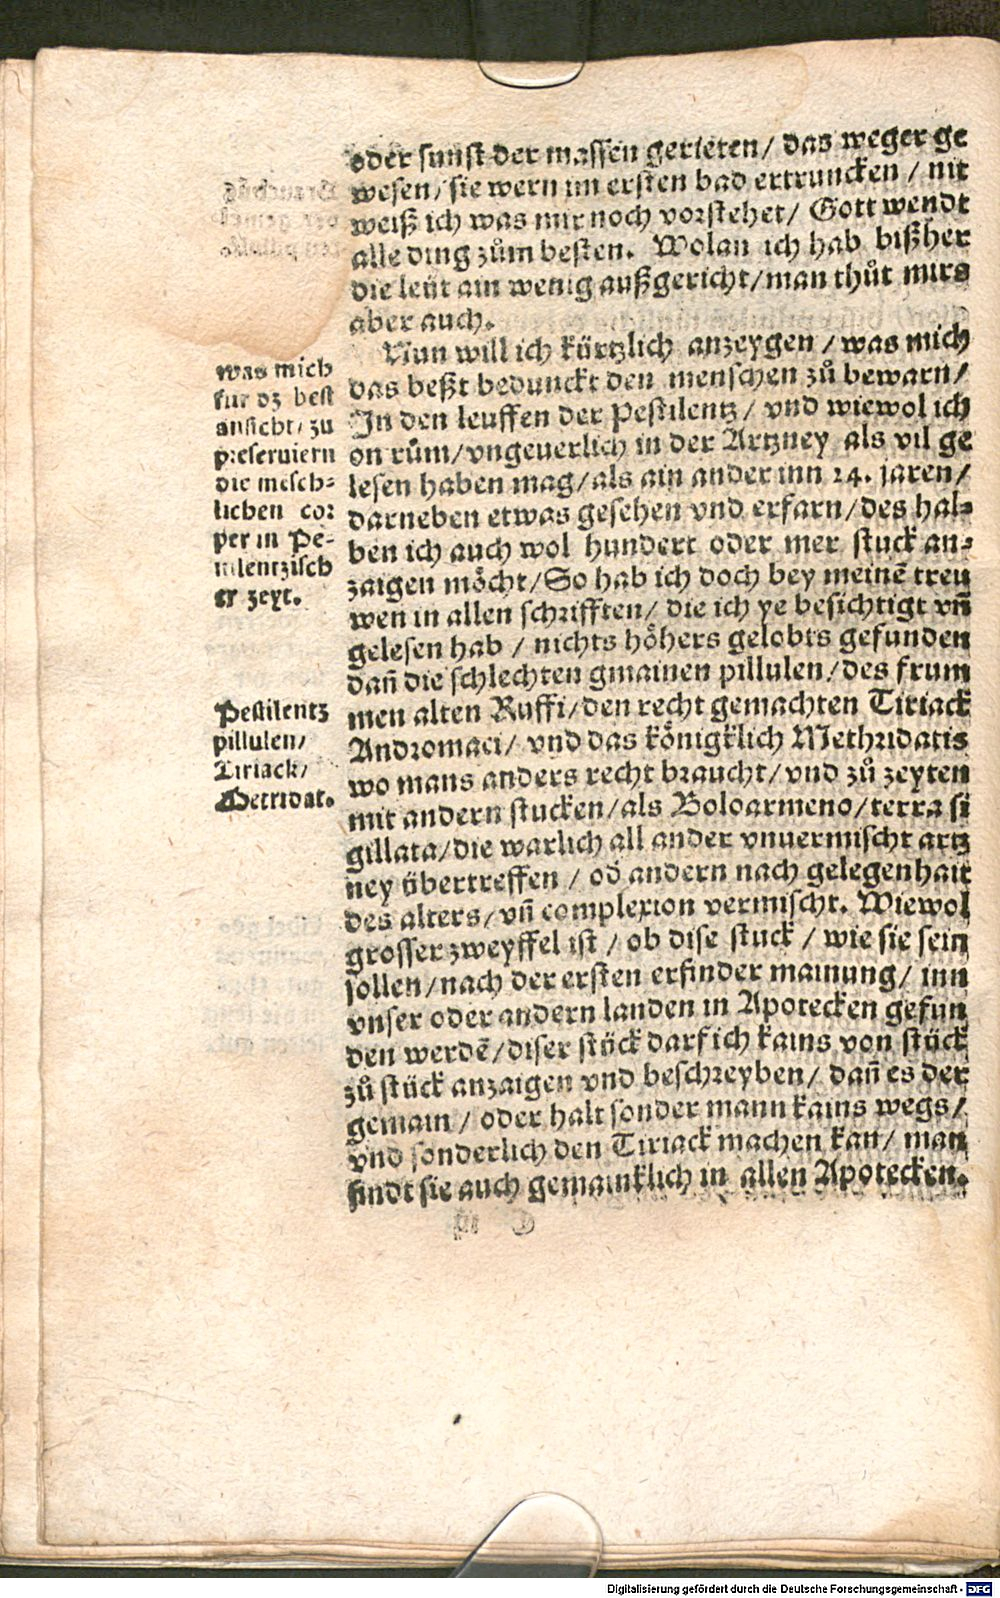 oder sunst der massen gerieten/ das weger ge
wesen/ sie wern im ersten bad ertruncken / nit
weiß ich was mir noch vorstehet/ Gott wendt
alle ding zům besten. Wolan ich hab bißher
die leüt ain wenig außgericht/ man thůt mirs
aber auch.
Nun will ich kürtzlich anzeygen / was mich
das beßt bedunckt den menschen zů bewarn/
In den leuffen der Pestilentz/ vnd wiewol ich
on rům/ vngeuerlich in der Artzney als vil ge
lesen haben mag/ als ain ander inn 24. jaren/
darneben etwas gesehen vnd erfarn/ des hal⸗
ben ich auch wol hundert oder mer stuck an⸗
zaigen möcht/ So hab ich doch bey meinē treu
wen in allen schrifften/ die ich ye besichtigt vñ
gelesen hab / nichts höhers gelobts gefunden
dañ die schlechten gmainen pillulen/ des frum
men alten Ruffi/ den recht gemachten Tiriack
Andromaci/ vnd das königklich Methridatis
wo mans anders recht braucht/ vnd zů zeyten
mit andern stucken/ als Boloarmeno/ terra si
gillata/ die warlich all ander vnuermischt artz
ney übertreffen / od̄ andern nach gelegenhait
des alters/ vñ complexion vermischt. Wiewol
grosser zweyffel ist / ob dise stuck / wie sie sein
sollen/ nach der ersten erfinder mainung/ inn
vnser oder andern landen in Apotecken gefun
den werdē/ diser stück darf ich kains von stück
zů stück anzaigen vnd beschreyben/ dañ es der
gemain / oder halt sonder mann kains wegs/
vnd sonderlich den Tiriack machen kan/ man
findt sie auch gemainklich in allen Apotecken.
was mich
fur dz best
ansicht/ zu
preseruiern
die mesch⸗
lichen cor
per in Pe⸗
stilentzisch
er zeyt.
Pestilentz
pillulen/
Tiriack/
Metridat.
Digitalisierung gefördert durch die Deutsche Forschungsgemeinschaft - DFG